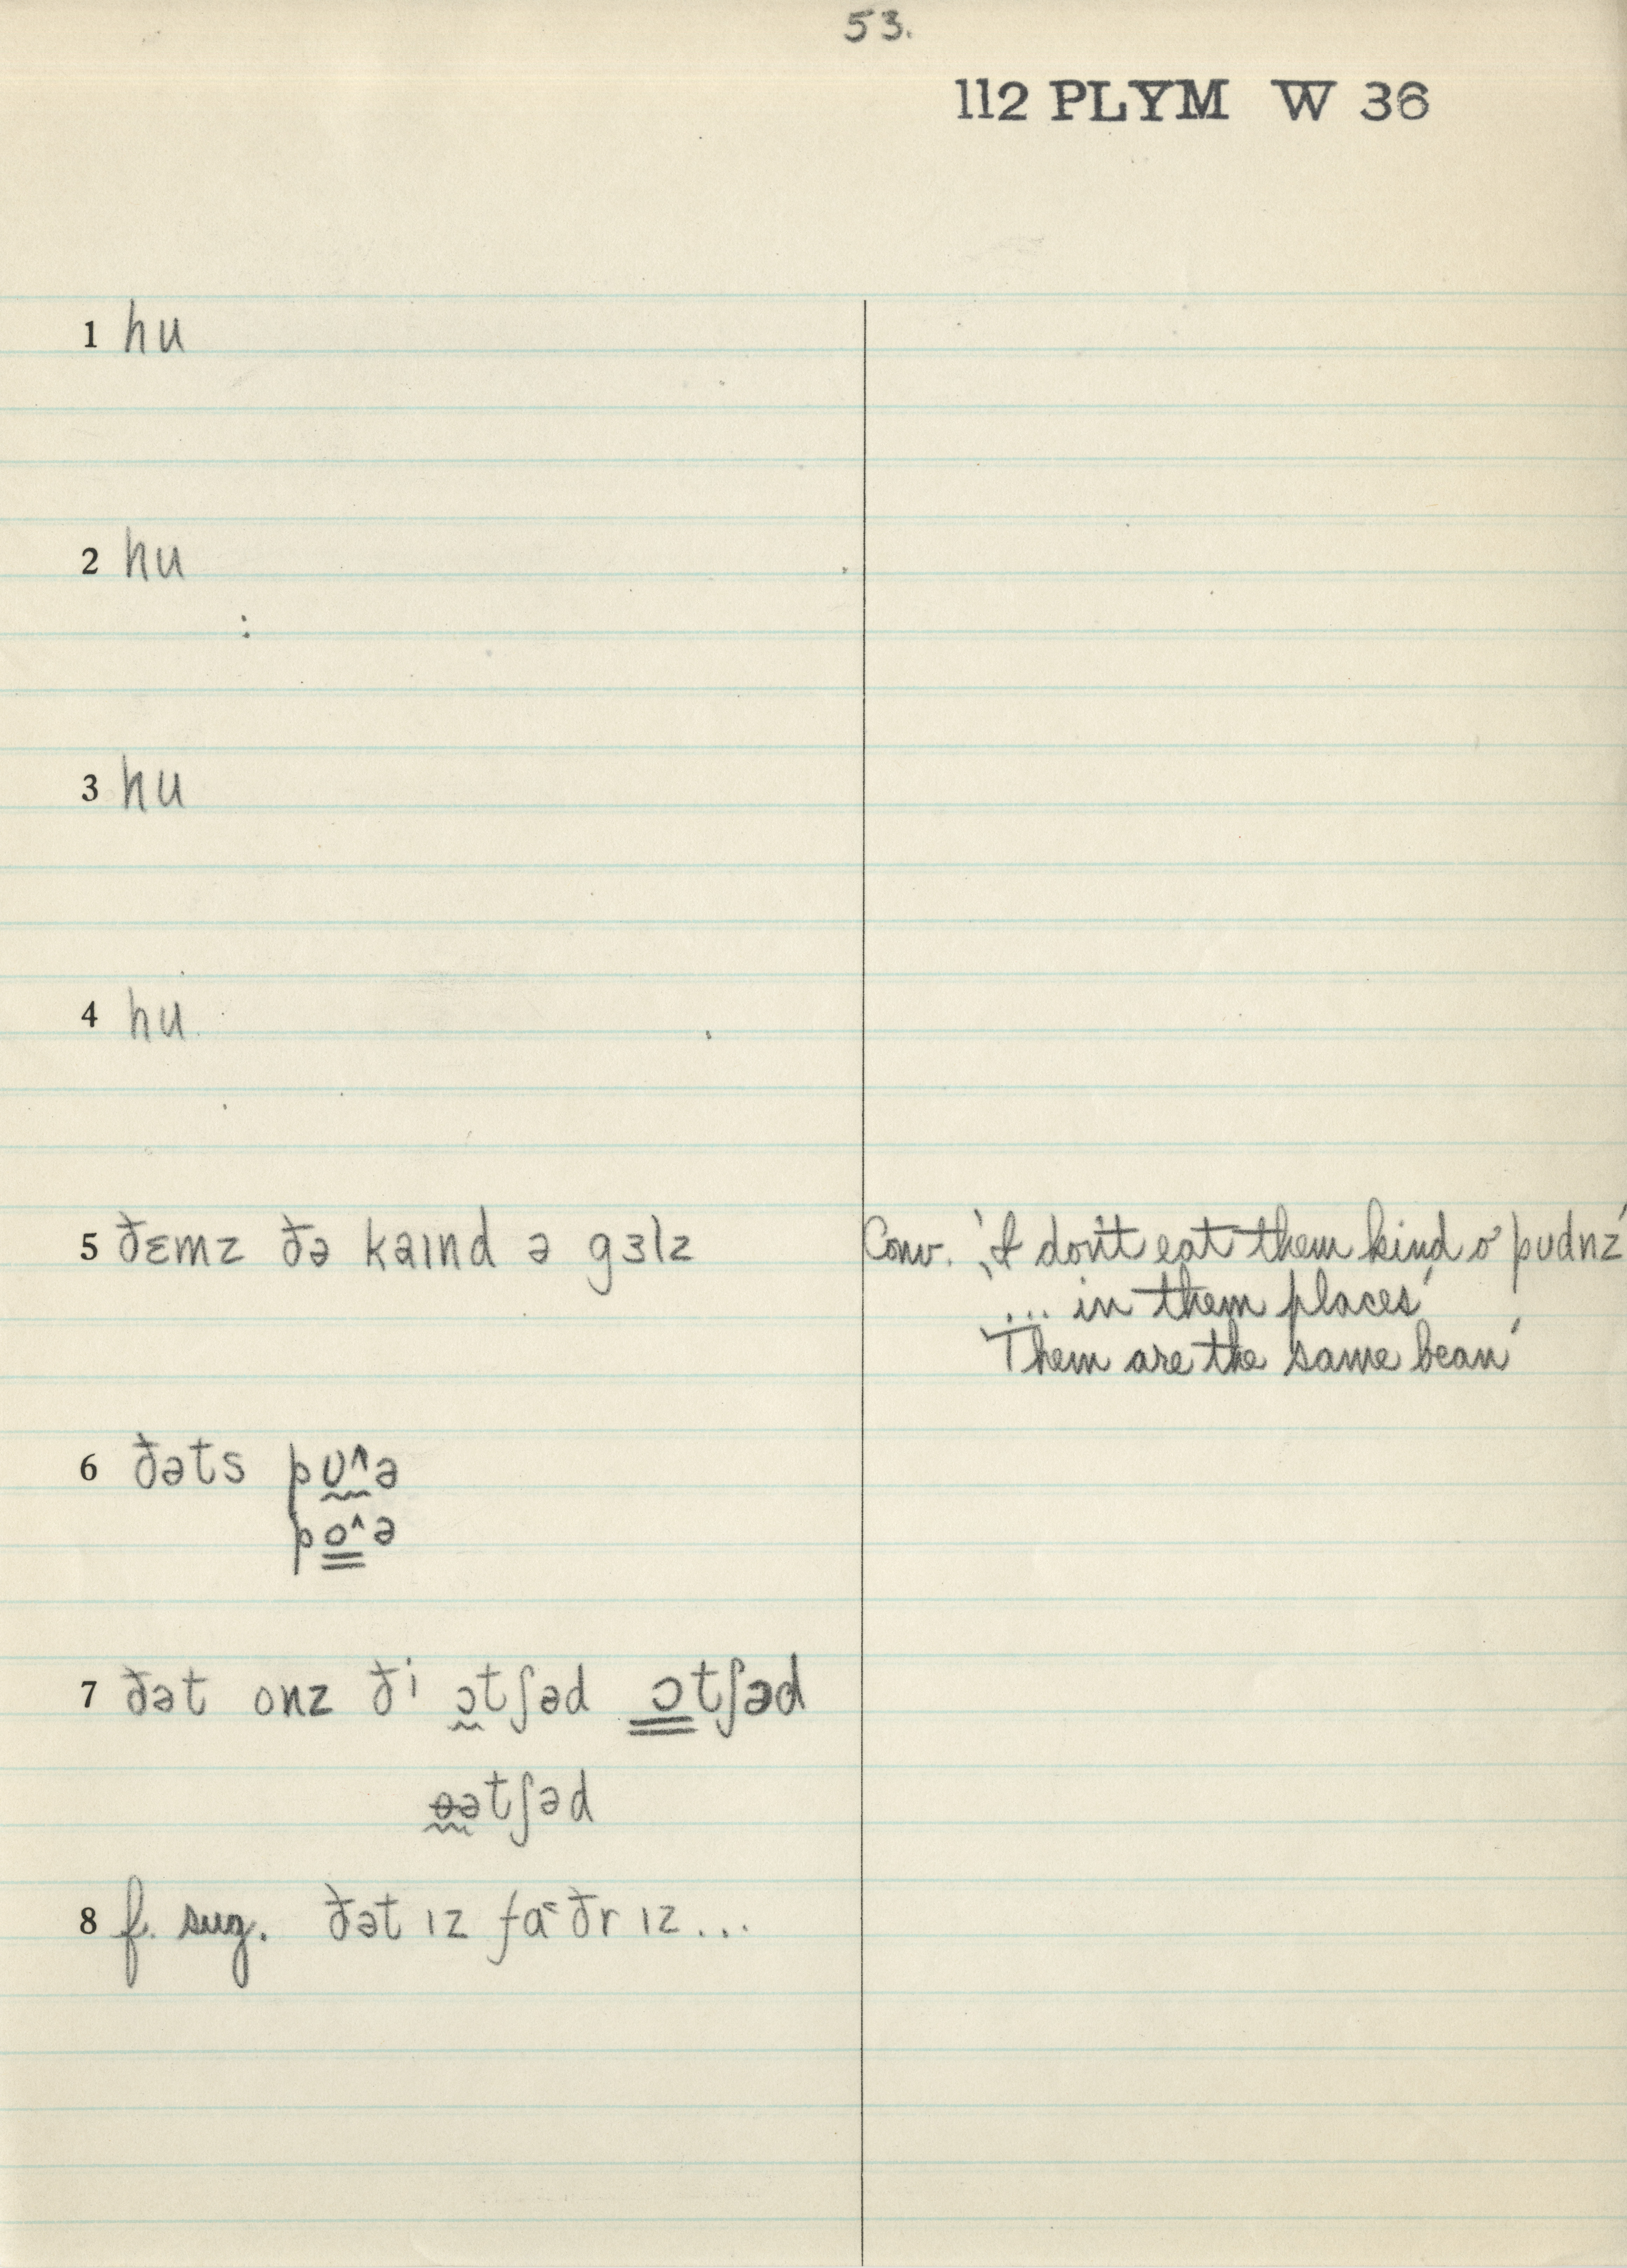 53.
112 PLYM W 36
1 hu
2 hu
3 hu
4 hu
5 ðɛmz ðə kaɪnd ə gɜlz
Conv. 'I don't eat them kind o' pudnz'
... in them places'
'Them are the same bean'
6 ðəts pʊ^ə
po^ə
7 ðət onz ði ɔtʃəd ɔtʃəd
ɵətʃəd
8 f. sug. ðət ɪz fa˂ðr ɪz...